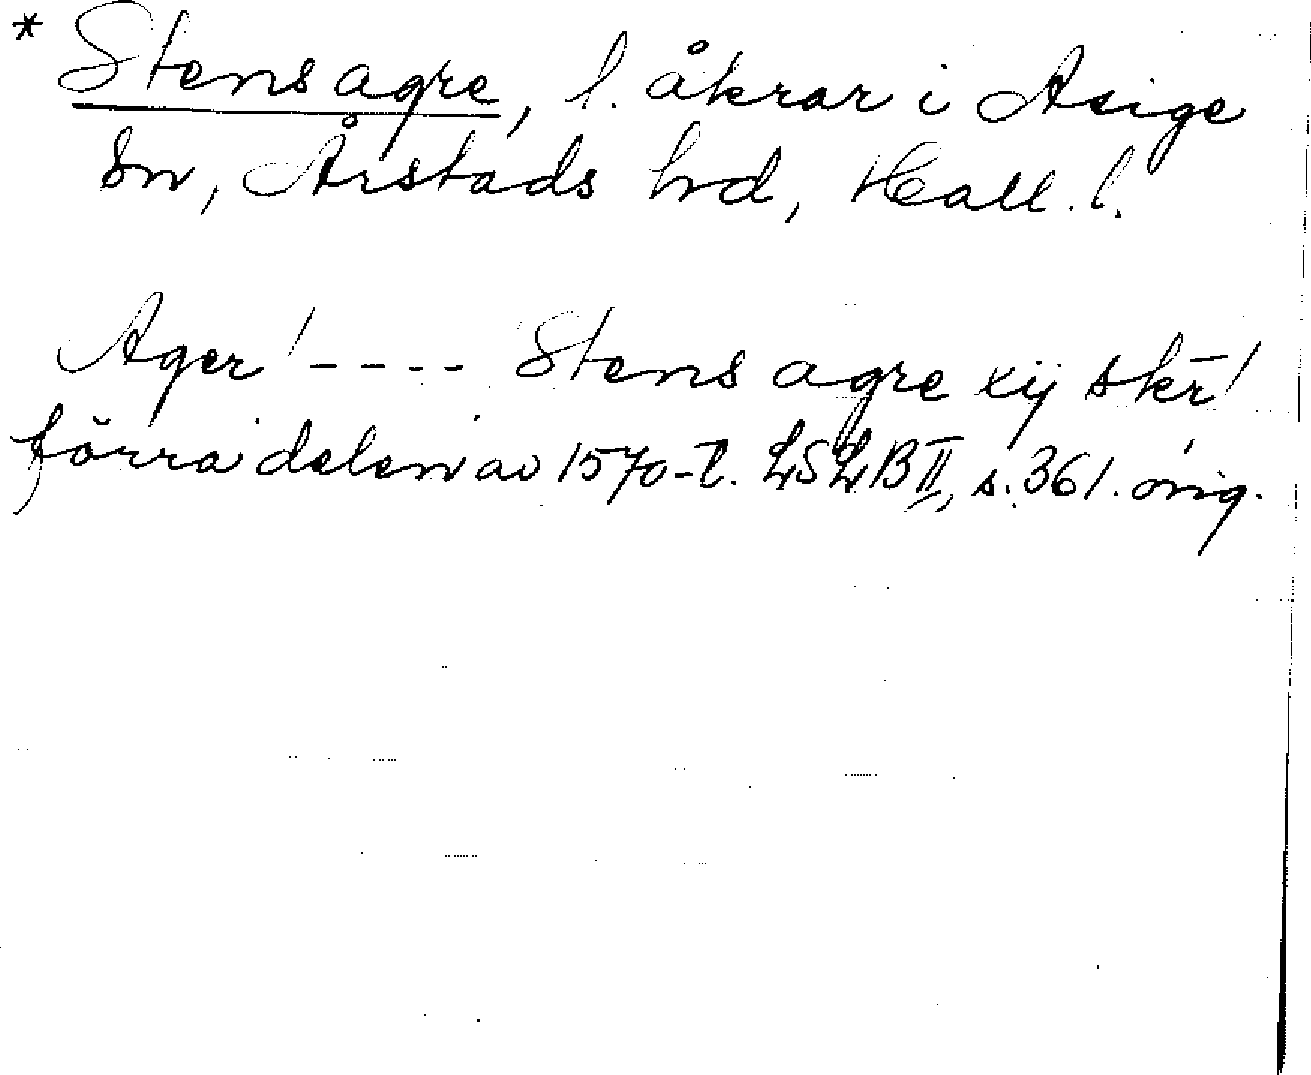 * Stens agre, f. åkrar i Asige
sn, Årstads hrd, Hall. l.
Ager / - - - - Stens agre xij skr̄ /
förra delen av 1570-t. LSLB II, s. 361. orig.